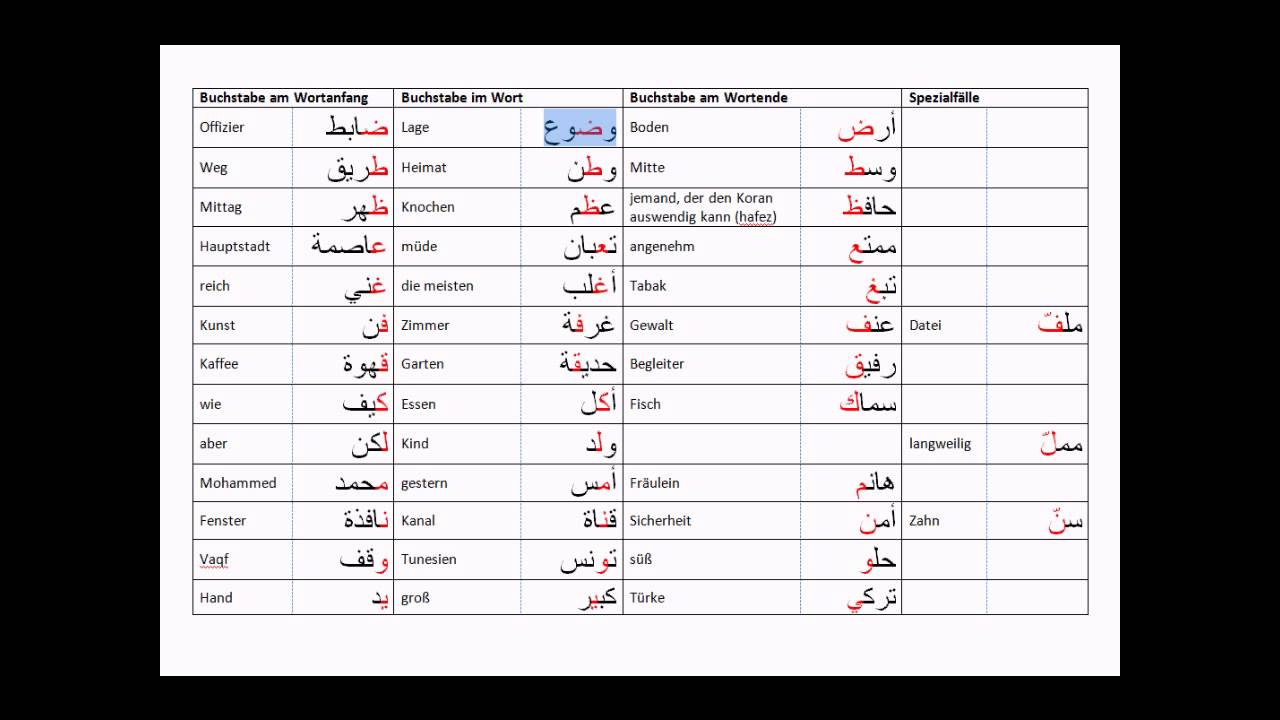 Buchstabe am Wortanfang Buchstabe im Wort Buchstabe am Wortende Spezialfälle
Offizier ضابط Lage وضوع Boden أرض
Weg طريق Heimat وطن Mitte وسط
Mittag ظهر Knochen عظم jemand, der den Koran auswendig kann (hafez) حافظ
Hauptstadt عاصمة müde تعبان angenehm ممتع
reich غني die meisten أغلب Tabak تبغ
Kunst فن Zimmer غرفة Gewalt عنف Datei ملفّ
Kaffee قهوة Garten حديقة Begleiter رفيق
wie كيف Essen أكل Fisch سماك
aber لكن Kind ولد langweilig مملّ
Mohammed محمد gestern أمس Fräulein هانم
Fenster نافذة Kanal قناة Sicherheit أمن Zahn سنّ
Vaqf وقف Tunesien تونس süß حلو
Hand يد groß كبير Türke تركي